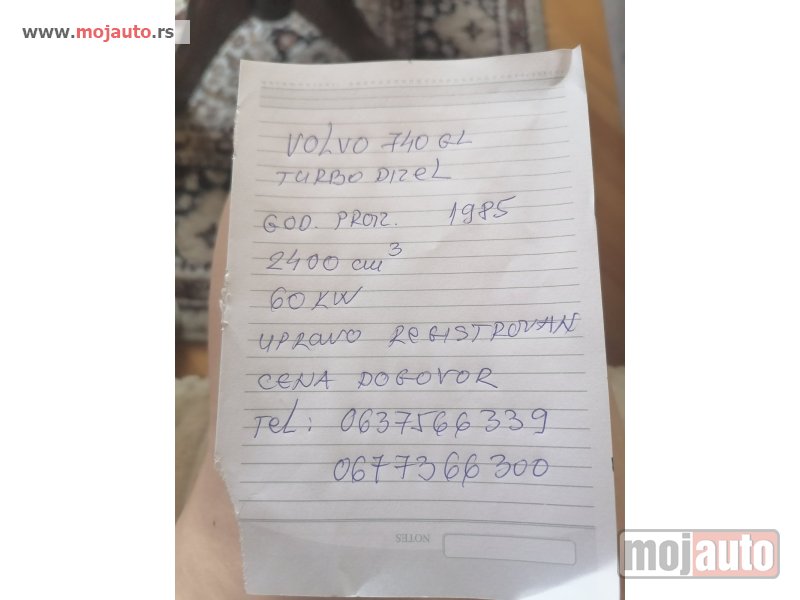 www.mojauto.rs
VOLVO 740 GL
TURBO DIZEL
GOD. PROIZ. 1985
2400 cm³
60 KW
UPRAVO REGISTROVAN
CENA DOGOVOR
Tel: 0637566339
0677366300
NOTES
mojauto